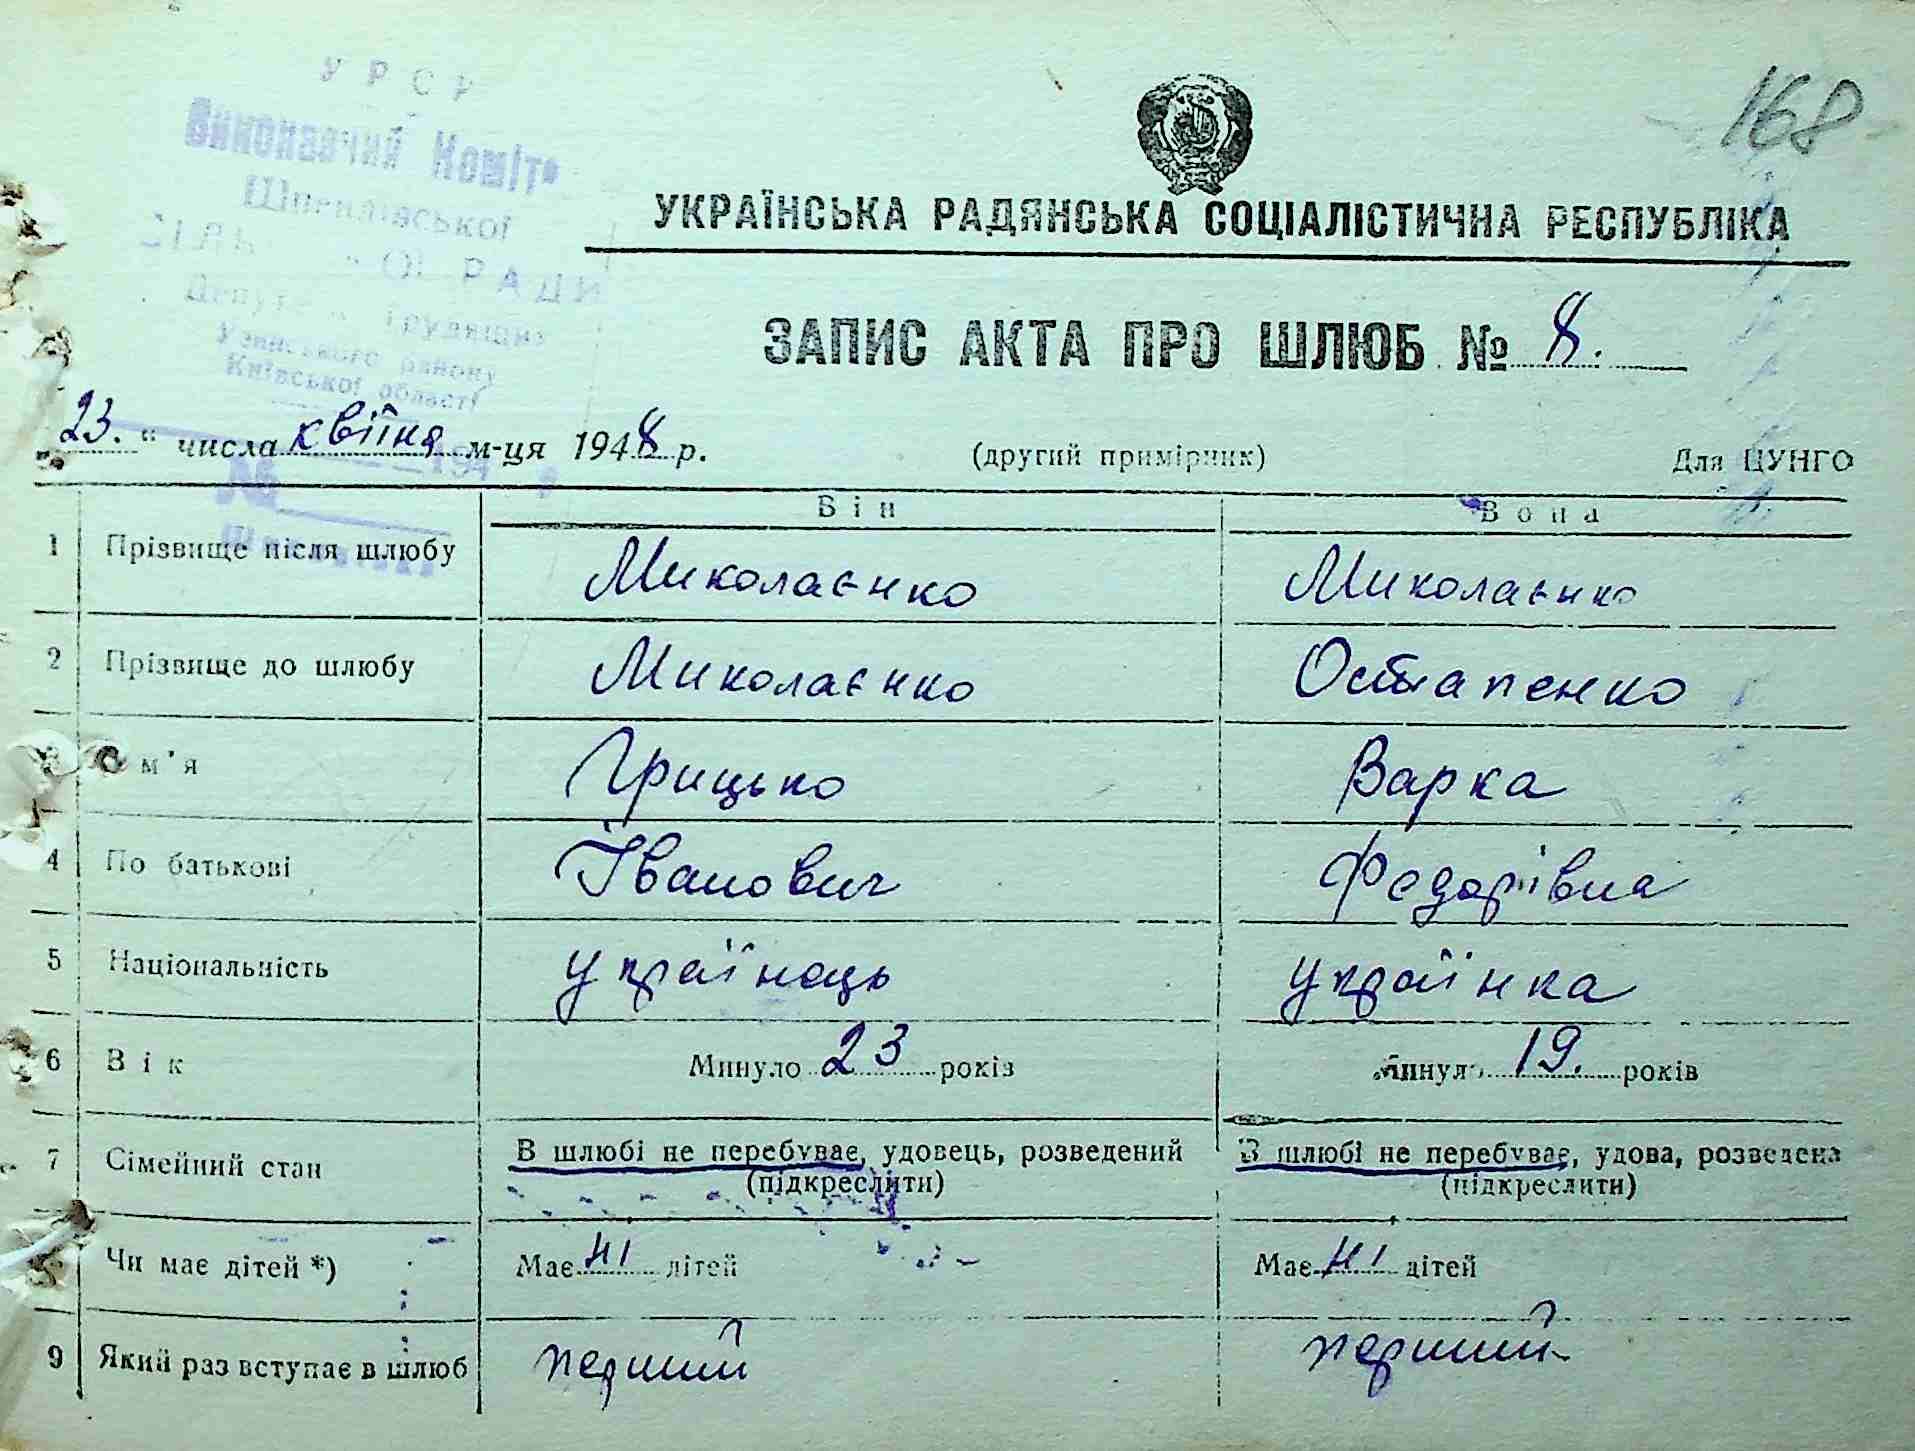 УРСР
Виконавчий Комітет
Шпендівської
СІЛЬ ОЇ РАДИ
Депут Трудящих
Узинського району
Київської області
168
УКРАЇНСЬКА РАДЯНСЬКА СОЦІАЛІСТИЧНА РЕСПУБЛІКА
ЗАПИС АКТА ПРО ШЛЮБ № 8.
23. " числа квітня м-ця 1948 р.
(другий примірник)
Для ЦУНГО
№ 194 р
Він Вона
1 Прізвище після шлюбу Миколаєнко Миколаєнко
2 Прізвище до шлюбу Миколаєнко Остапенко
3 Ім'я Грицько Варка
4 По батькові Іванович Федорівна
5 Національність українець українка
6 Вік Минуло 23 років Минуло 19. років
7 Сімейний стан В шлюбі не перебуває, удовець, розведений В шлюбі не перебуває, удова, розведена
(підкреслити) (підкреслити)
8 Чи має дітей *) Має ні дітей Має ні дітей
9 Який раз вступає в шлюб перший перший